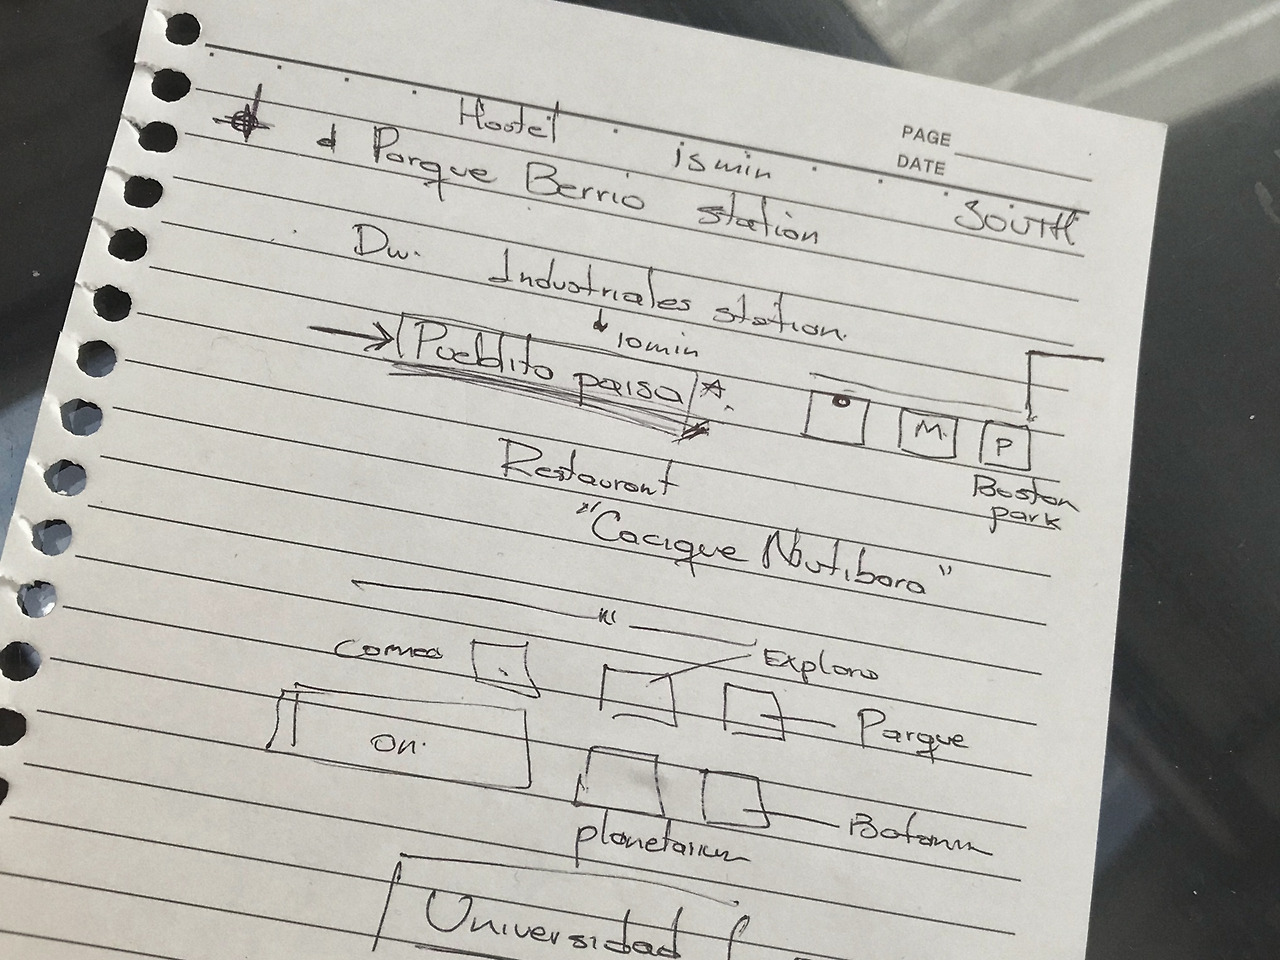 PAGE
DATE
Hostel 15 min
d Parque Berrio station SOUTH
Dw. Industriales station.
10min
Pueblito paisa
M P
Boston park
Restaurant
"Cacique Nutibara"
Explora
Parque
on.
planetarium
Universidad